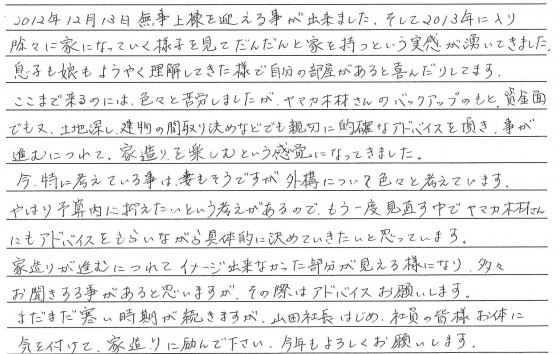 2012年12月13日 無事上棟を迎える事が出来ました。そして2013年に入り
除々に家になっていく様子を見てだんだんと家を持つという実感が湧いてきました。
息子も娘もようやく理解してきた様で自分の部屋があると喜んだりしてます。
ここまで来るのには、色々と苦労しましたが、ヤマカ木材さんのバックアップのもと、資金面
でも又、土地探し、建物の間取り決めなどでも親切に的確なアドバイスを頂き、事が
進むにつれて、家造りを楽しむという感覚になってきました。
今、特に考えている事は、妻もそうですが外構について色々と考えています。
やはり予算内に抑えたいという考えがあるので、もう一度見直す中でヤマカ木材さん
にもアドバイスをもらいながら具体的に決めていきたいと思っています。
家造りが進むにつれてイメージ出来なかった部分が見える様になり、多々
お聞きする事があると思いますが、その際はアドバイスお願いします。
まだまだ寒い時期が続きますが、山田社長はじめ、社員の皆様お体に
気を付けて、家造りに励んで下さい。今年もよろしくお願いします。